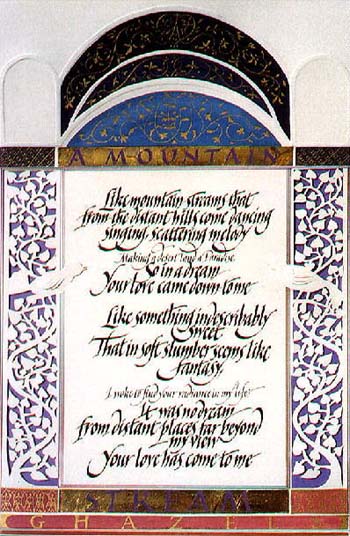 A MOUNTAIN
Like mountain streams that
from the distant hills come dancing
singing, scattering melody
Making a desert land a Paradise.
So in a dream
Your love came down to me
Like something indescribably
sweet
That in soft slumber seems like
fantasy.
I woke to find your radiance in my life;
It was no dream
from distant places far beyond
my view
Your love has come to me
STREAM
GHAZEL